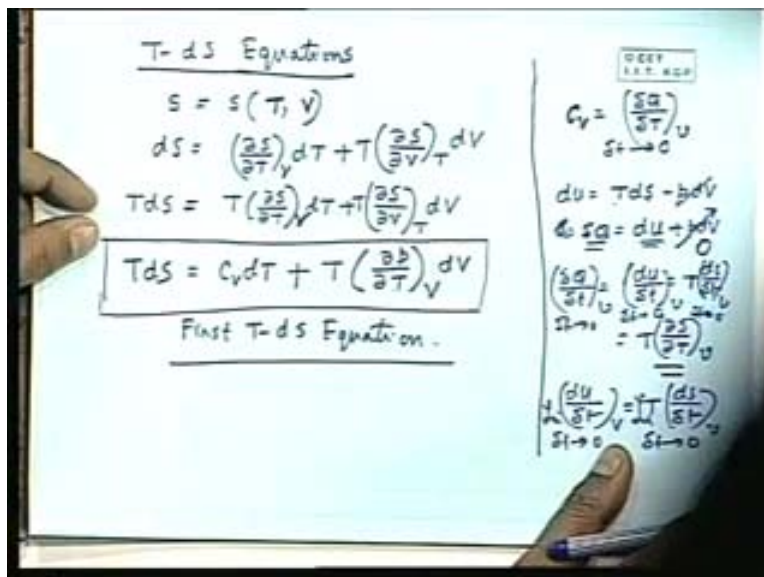 T-dS Equations
S = S(T, V)
dS = (∂S/∂T)_V dT + T(∂S/∂V)_T dV
TdS = T(∂S/∂T)_V dT + T(∂S/∂V)_T dV
TdS = C_V dT + T(∂p/∂T)_V dV
First T-dS Equation.
I.I.T. KGP
C_V = (δQ/δT)_V
δt→0
dU = TdS - pdV
δQ = dU + pdV
0
(δQ/δt)_V = (dU/δt)_V = T(dS/δt)_V
δt→0 δt→0 δt→0
= T(∂S/∂T)_V
(dU/δt)_V = T(dS/δt)_V
δt→0 δt→0